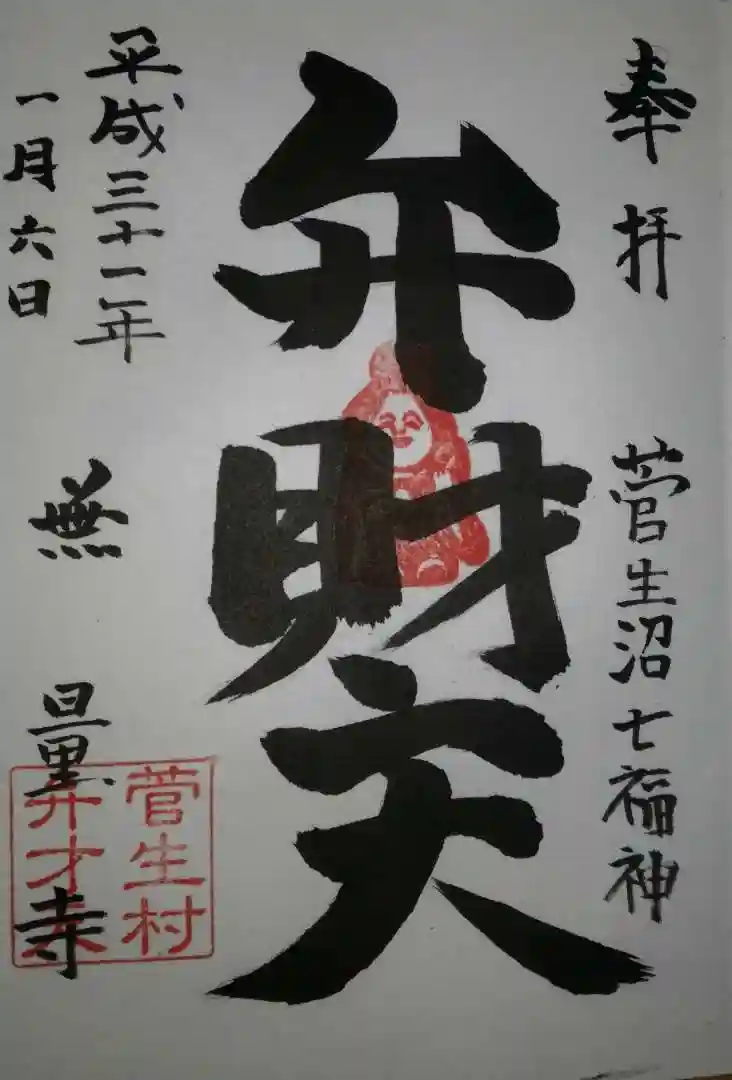 奉拝
菅生沼七福神
弁財天
平成三十一年
一月六日
無量寺
菅生村
弁才天